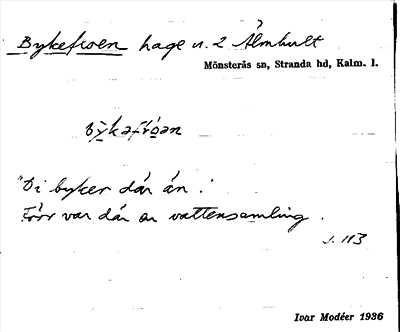 Bykefroen hage n. 2 Älmhult
Mönsterås sn, Stranda hd, Kalm. l.
"Di byker där än."
Förr var där en vattensamling.
s. 113
Ivar Modéer 1936